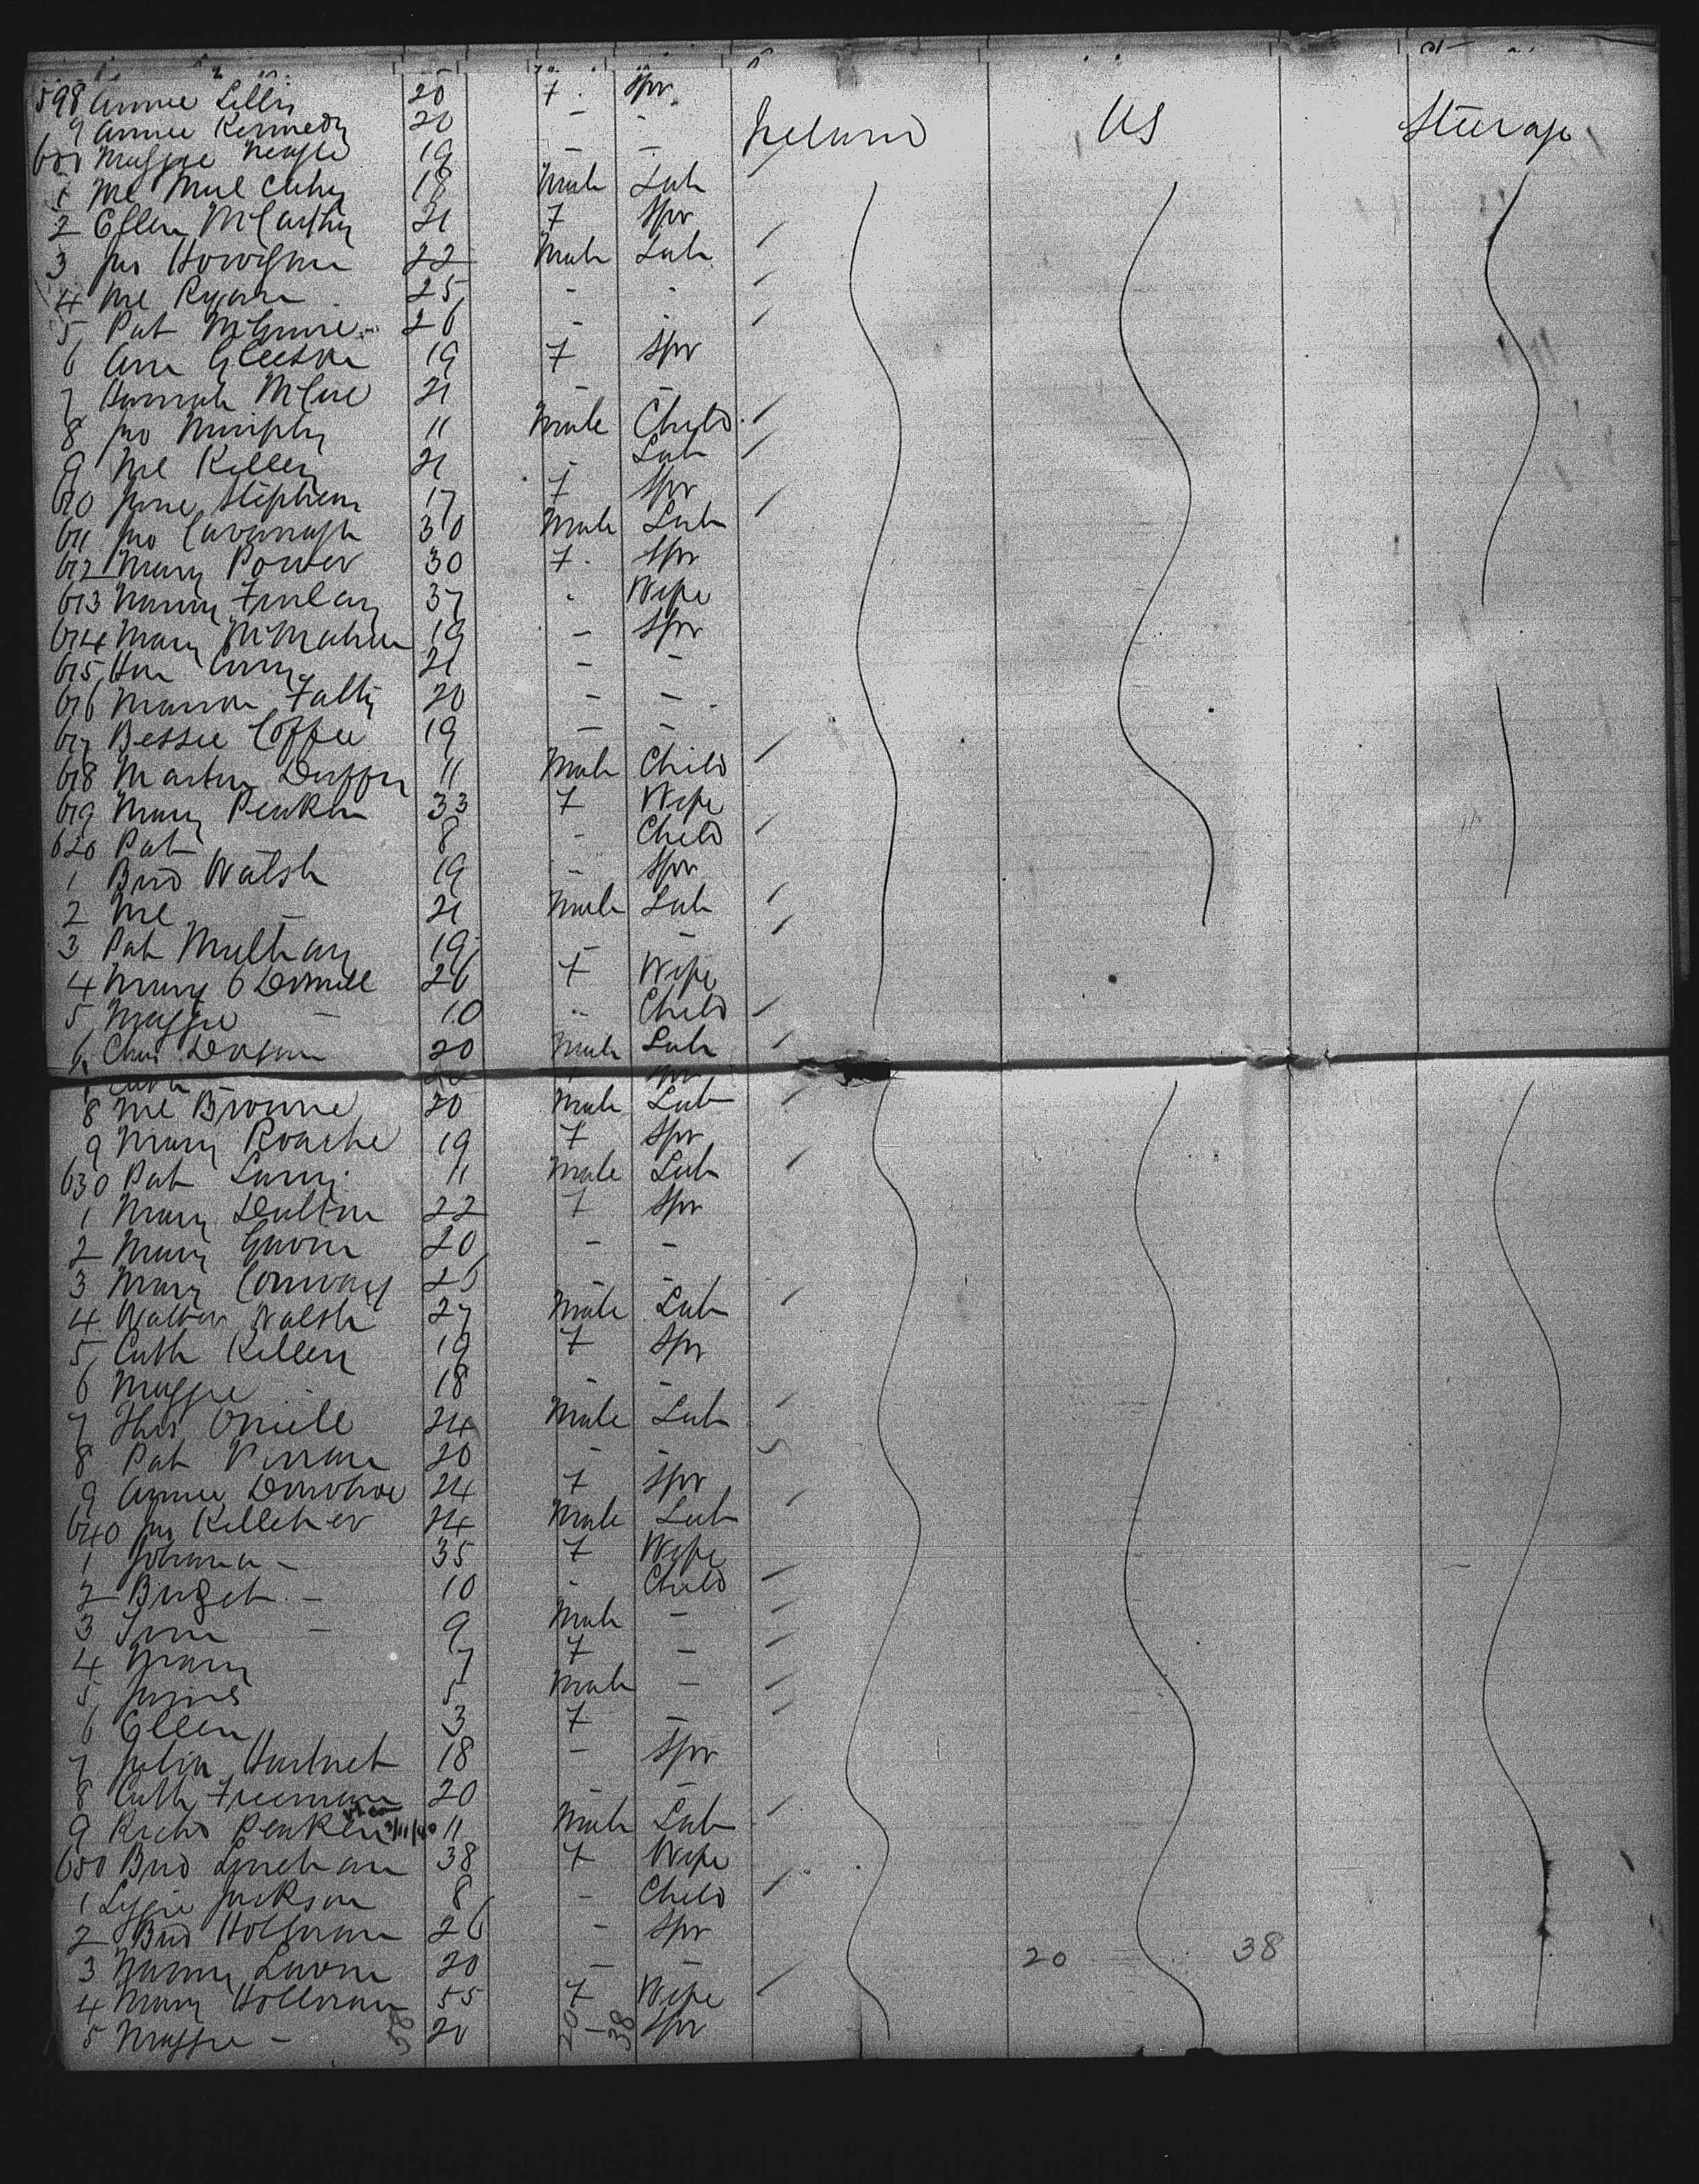 598 Annie Lillis 20 F. Spr Ireland US Steerage
9 Annie Kennedy 20 - -
600 Maggie Neagle 19 - -
1 Ml Mul Cahy 18 Male Lab
2 Ellen McCarthy 21 F Spr
3 Jas Horrigan 22 Male Lab
4 Ml Ryan 25 - -
5 Pat McGuire 26 - -
6 Ann Gleeson 19 F Spr
7 Hannah McCue 21 - -
8 Jno Murphy 11 Male Child
9 Ml Killey 21 - Lab
610 Jane Stephens 17 F Spr
611 Jno Cavanagh 30 Male Lab
612 Mary Power 30 F. Spr
613 Nanny Finlay 37 - Wife
614 Mary McMahon 19 - Spr
615 Han Curry 21 - -
616 Marion Falty 20 - -
617 Bessie Coffee 19 - -
618 Martin Duffy 11 Male Child
619 Mary Penken 33 F Wife
620 Pat 8 - Child
1 Brid Walsh 19 - Spr
2 Ml - 21 Male Lab
3 Pat Mulhay 19 - -
4 Mary O Donnell 26 F Wife
5 Maggie - 10 - Child
6 Chas Dorgan 20 Male Lab
Spr
8 Ml Browne 20 Male Lab
9 Mary Roache 19 F Spr
630 Pat 11 Male Lab
1 Mary Dalton 22 F Spr
2 Mary Gavin 20 - -
3 Mary Conway 25 - -
4 Walter Walsh 27 Male Lab
5 Cath Killey 19 F Spr
6 Maggie 18 - -
7 Thos Oniell 24 Male Lab
8 Pat 20 - -
9 Annie Donohoe 24 F Spr
640 Jas Kelleher 24 Male Lab
1 Johana - 35 F Wife
2 Bridget - 10 - Child
3 Tim - 9 Male -
4 Mary 7 F -
5 James 5 Male -
6 Ellen 3 F -
7 Julia Hartnet 18 - Spr
8 Cath Freeman 20 - -
9 Richd Penken 11 Male Lab
650 Brid Linehan 38 F Wife
1 Lizzie Jackson 8 - Child
2 Brid Holloran 26 - Spr
3 Nanny Lavin 20 - - 20 38
4 Mary Holloran 55 F Wife
5 Maggie - 20 - Spr
58 20 38